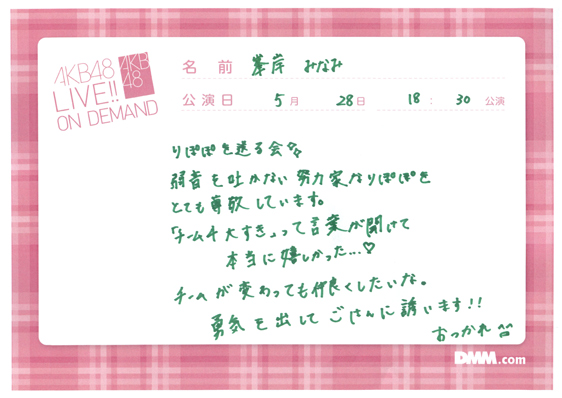 AKB48
LIVE!!
ON DEMAND
AKB
48
名 前 峯岸 みなみ
公演日 5月 28日 18:30 公演
りぽぽを送る会
弱音を吐かない努力家なりぽぽを
とても尊敬しています。
「チーム4大すき」って言葉が聞けて
本当に嬉しかった...♡
チームが変わっても仲良くしたいな。
勇気を出してごはんに誘います!!
おつかれ^^
DMM.com